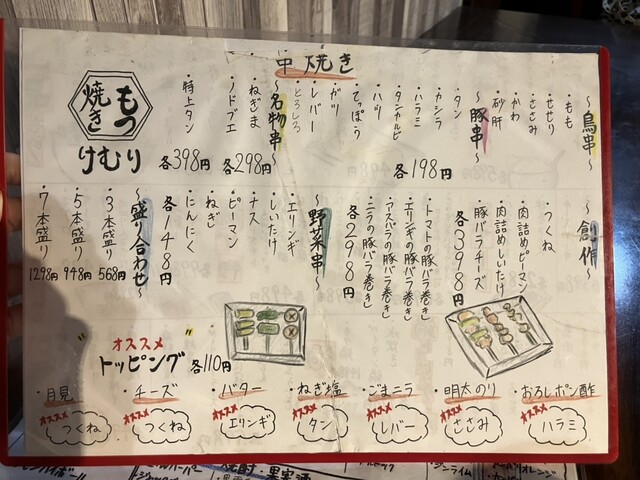 串焼き
もつ焼き
けむり
〜鳥串〜
・もも
・せせり
・ささみ
・かわ
・砂肝
〜豚串〜
・タン
・カシラ
・ハラミ
・タンカルビ
・ハツ
・てっぽう
・ガツ
・レバー
・とろしろ
各198円
〜名物串〜
・ねぎま
・ノドブエ
各298円
・特上タン
各398円
〜創作〜
・つくね
・肉詰めピーマン
・肉詰めしいたけ
・豚バラチーズ
各398円
・トマトの豚バラ巻き
・エリンギの豚バラ巻き
・アスパラの豚バラ巻き
・ニラの豚バラ巻き
各298円
〜野菜串〜
・エリンギ
・しいたけ
・ナス
・ピーマン
・ねぎ
・にんにく
各148円
〜盛り合わせ〜
・3本盛り 568円
・5本盛り 948円
・7本盛り 1298円
"オススメ"
トッピング 各110円
・月見 ・チーズ ・バター ・ねぎ塩 ・ごまニラ ・明太のり ・おろしポン酢
オススメ オススメ オススメ オススメ オススメ オススメ オススメ
つくね つくね エリンギ タン レバー ささみ ハラミ